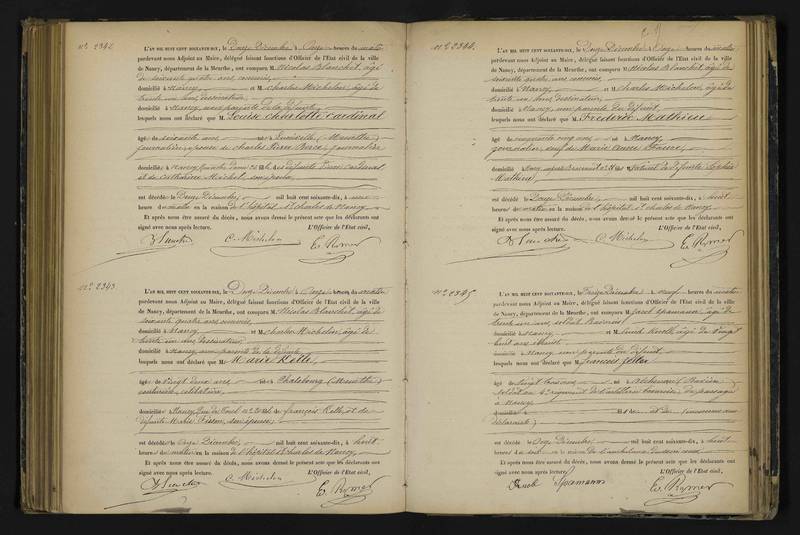 N° 2342
L'AN MIL HUIT CENT SOIXANTE-DIX, le Douze Décembre à Onze heures du matin
pardevant nous Adjoint au Maire, délégué faisant fonctions d'Officier de l'Etat civil de la ville
de Nancy, département de la Meurthe, ont comparu M. Nicolas Blanchet, âgé
de soixante quatre ans commis,
domicilié à Nancy et M. Charles Michelon, âgé de
trente un ans, dessinateur,
domicilié à Nancy, non parents de la défunte
lesquels nous ont déclaré que M. Louise Charlotte Cardinal
âgée de soixante ans née à Lunéville (Meurthe)
journalière, épouse de Charles Pierre journalier
domiciliée à Nancy défunts Cardinal
et de Catherine Michel,
est décédée le Douze Décembre, mil huit cent soixante-dix, à une
heure du matin en la maison de l'hôpital St Charles de Nancy
Et après nous être assuré du décès, nous avons dressé le présent acte que les déclarants ont
signé avec nous après lecture. L'Officier de l'Etat civil,
Blanchet C. Michelon
N° 2343
L'AN MIL HUIT CENT SOIXANTE-DIX, le Douze Décembre à Onze heures du matin
pardevant nous Adjoint au Maire, délégué faisant fonctions d'Officier de l'Etat civil de la ville
de Nancy, département de la Meurthe, ont comparu M. Nicolas Blanchet, âgé de
soixante quatre ans commis,
domicilié à Nancy et M. Charles Michelon, âgé de
trente un ans dessinateur,
domicilié à Nancy, non parents de la défunte
lesquels nous ont déclaré que M. Marie Kelle
âgée de vingt deux ans née à Phalsbourg (Meurthe)
couturière, célibataire
domiciliée à Nancy, rue de Toul fille de François Kelle, et de
défunte Marie
est décédée le Onze Décembre, mil huit cent soixante-dix, à huit
heures du matin en la maison de l'hôpital St Charles de Nancy,
Et après nous être assuré du décès, nous avons dressé le présent acte que les déclarants ont
signé avec nous après lecture. L'Officier de l'Etat civil,
Blanchet C. Michelon
N° 2344
L'AN MIL HUIT CENT SOIXANTE-DIX, le Douze Décembre à Onze heures du matin
pardevant nous Adjoint au Maire, délégué faisant fonctions d'Officier de l'Etat civil de la ville
de Nancy, département de la Meurthe, ont comparu M. Nicolas Blanchet, âgé de
soixante quatre ans commis,
domicilié à Nancy et M. Charles Michelon, âgé de
trente un ans dessinateur,
domicilié à Nancy, non parents du défunt
lesquels nous ont déclaré que M. Frédéric Mathieu
âgé de cinquante cinq ans né à Nancy
journalier, veuf de Marie Anne
domicilié à Nancy défunte Sophie
Mathieu,
est décédé le Douze Décembre, mil huit cent soixante-dix, à huit
heures du matin en la maison de l'hôpital St Charles de Nancy
Et après nous être assuré du décès, nous avons dressé le présent acte que les déclarants ont
signé avec nous après lecture. L'Officier de l'Etat civil,
Blanchet C. Michelon
N° 2345
L'AN MIL HUIT CENT SOIXANTE-DIX, le Treize Décembre à neuf heures du matin
pardevant nous Adjoint au Maire, délégué faisant fonctions d'Officier de l'Etat civil de la ville
de Nancy, département de la Meurthe, ont comparu M. Jacob Spamann, âgé de
trente un ans, soldat Bavarois
domicilié à Nancy et M. âgé de vingt
huit ans
domicilié à Nancy, non parents du défunt
lesquels nous ont déclaré que M. François
âgé de vingt trois ans né à
soldat au régiment d'artillerie bavarois, de passage
à Nancy
domicilié à fils et de
déclarants)
est décédé le Douze Décembre, mil huit cent soixante-dix, à huit
heures du soir en la maison de l'ambulance
Et après nous être assuré du décès, nous avons dressé le présent acte que les déclarants ont
signé avec nous après lecture. L'Officier de l'Etat civil,
Spamann